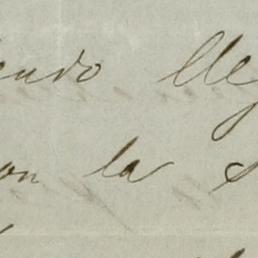 endo lleg
on la s